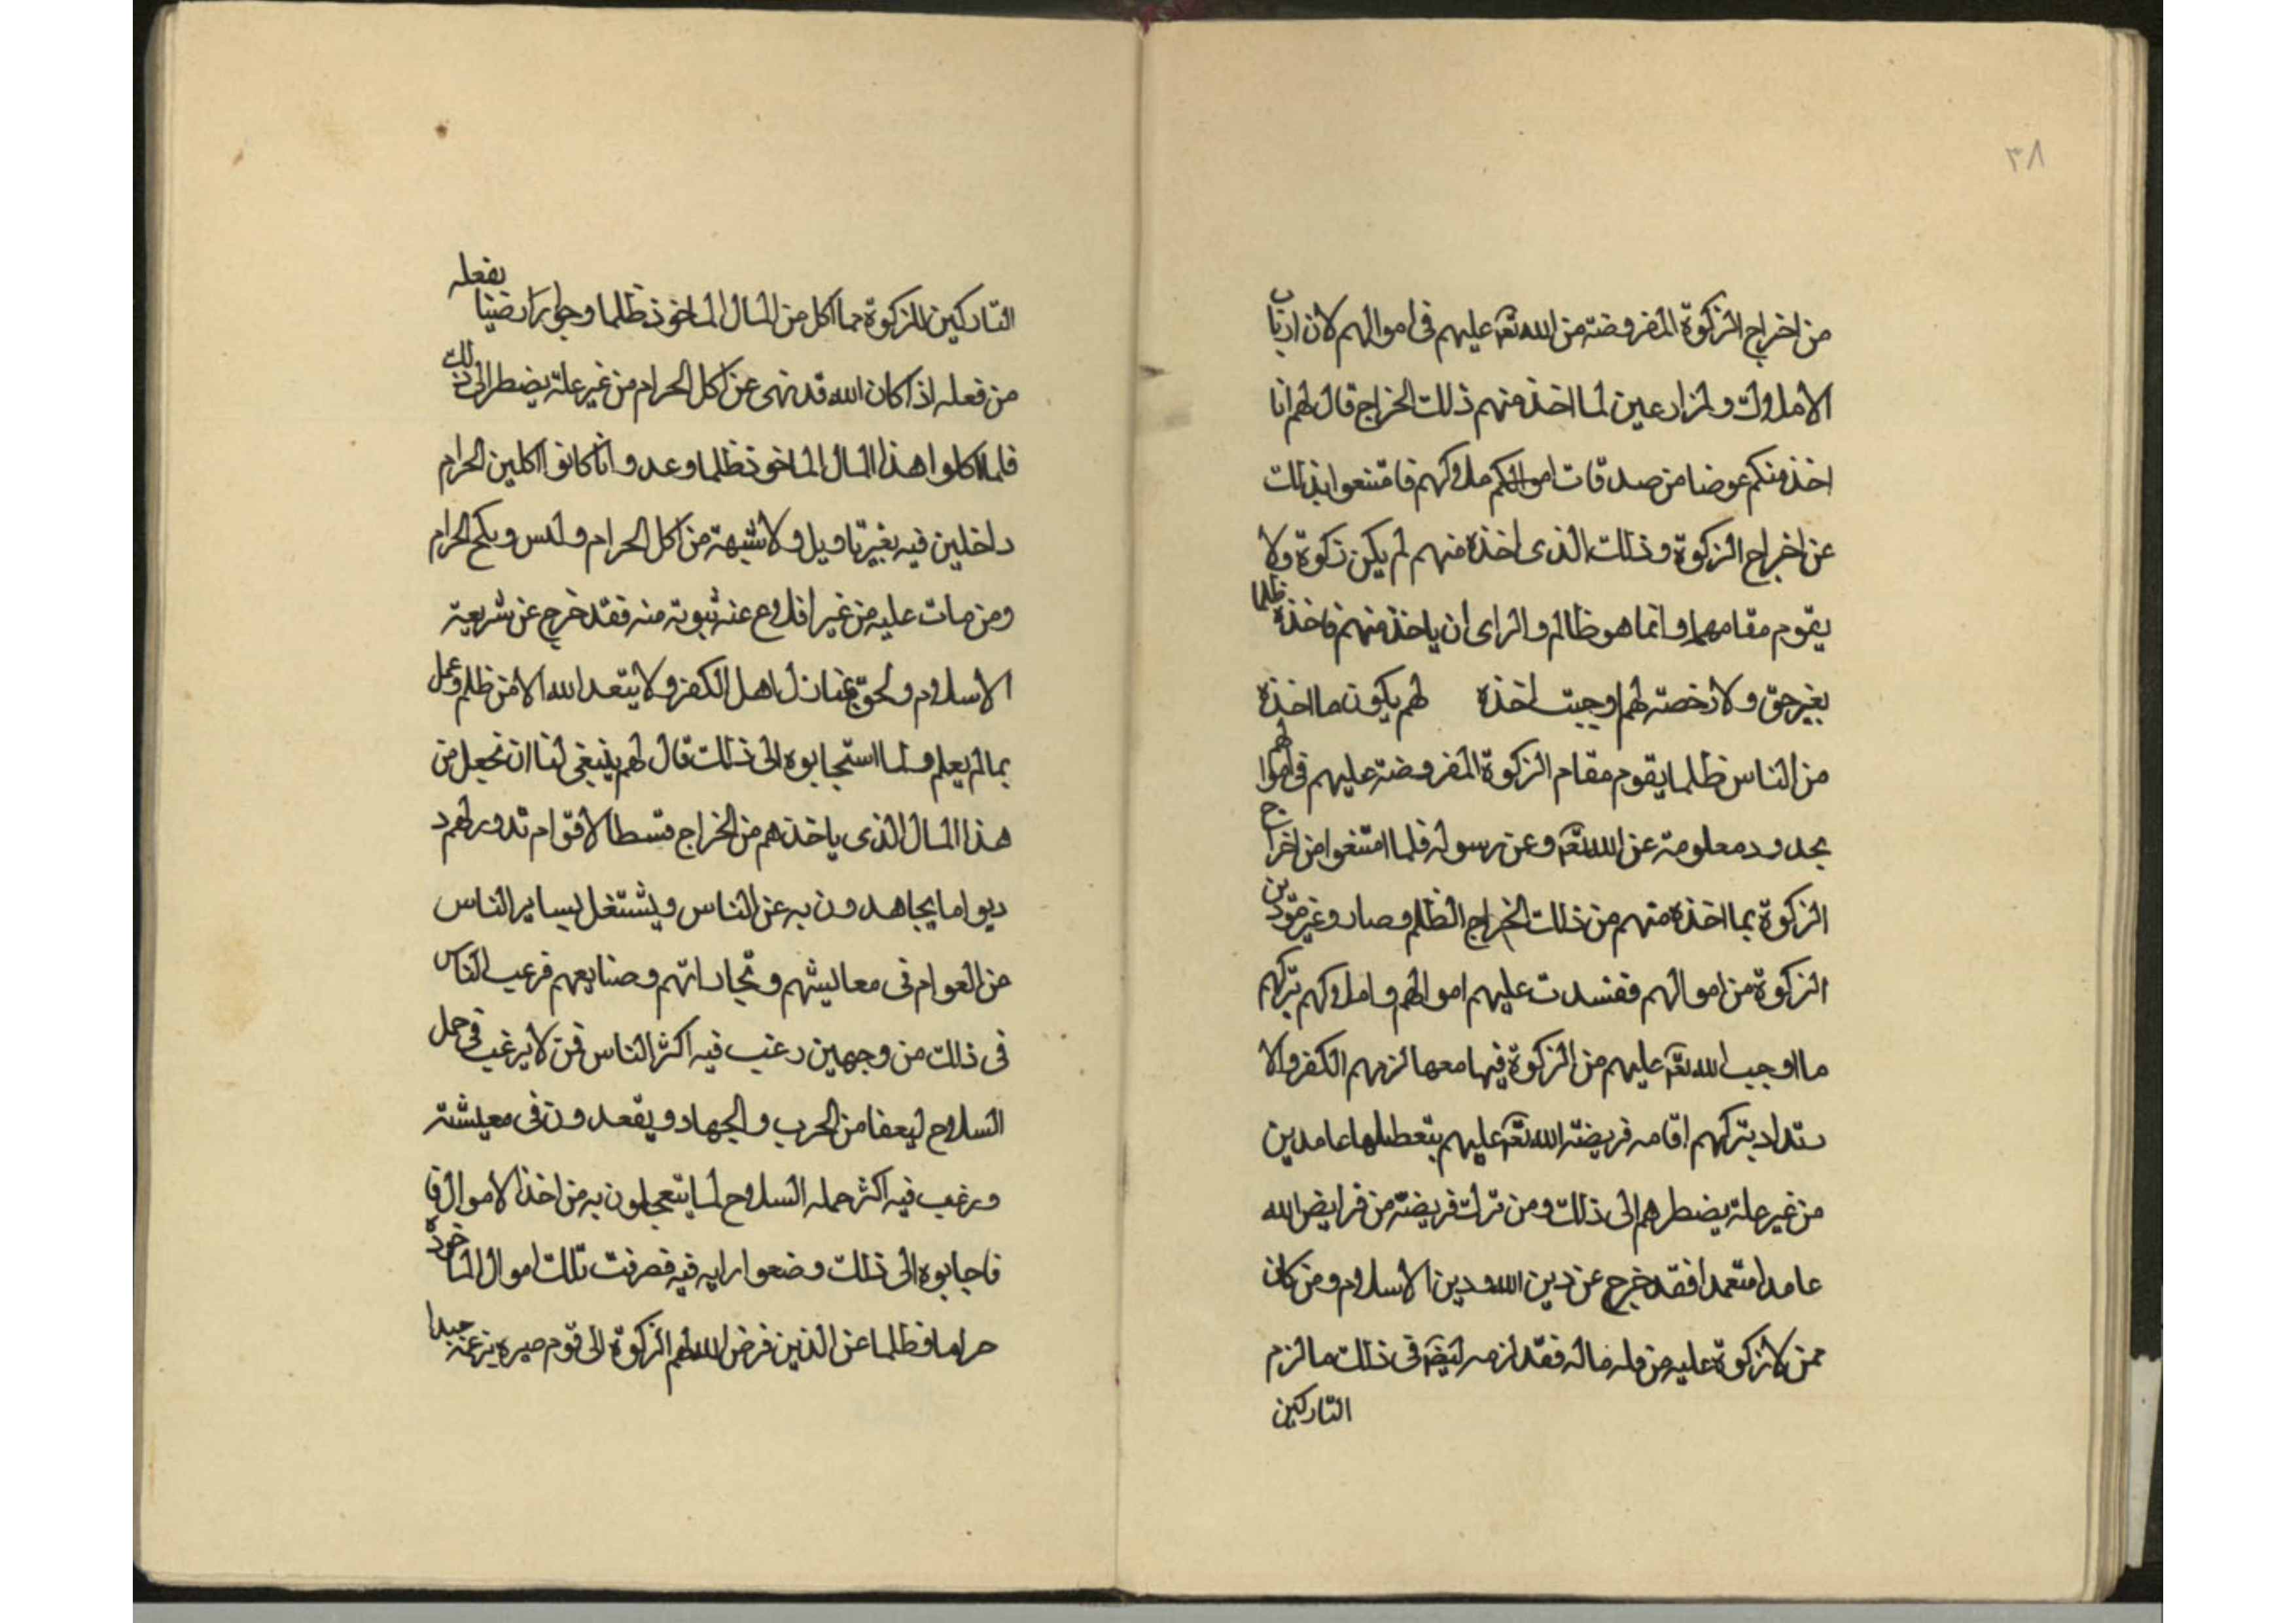 ٣٨
من اخراج الزكوة المفروضة من الله تعه عليهم فى اموالهم لان ارباب
الاملاك والمزارعين لما اخذ منهم ذلك الخراج قال لهم انا
اخذ منكم عوضا من صدقات اموالكم ملاكهم فامتنعوا بذلك
عن اخراج الزكوة وذلك الذى اخذه منهم لم يكن زكوة ولا
يقوم مقامهما وانما هو ظالم والراى ان ياخذ منهم فاخذه ظلما
بغير حق ولا رخصة لهم اوجبت اخذه لهم يكون ما اخذه
من الناس ظلما يقوم مقام الزكوة المفروضة عليهم فى اموالهم
بحدود معلومة عن الله تعه وعن رسوله فلما امتنعوا من اخراج
الزكوة بما اخذه منهم من ذلك الخراج الظلم وصاروغير مؤدين
الزكوة من اموالهم ففسدت عليهم اموالهم واملاكهم بتركهم
ما اوجب الله تعه عليهم من الزكوة فيها معها لزمهم الكفر والا
ستداد بتركهم اقامه فريضة الله تعه عليهم بتعطيلها عامدين
من غير علة يضطرهم الى ذلك ومن ترك فريضة من فرايض الله
عامدا متعمدا فقد خرج عن دين الله ودين الاسلام ومن كان
ممن لا زكوة عليه من قله ماله فقد لزمه ايضا فى ذلك ما لزم
التاركين
التاركين للزكوة مما اكل من المال الماخوذ ظلما وجوارا رضينا بفعله
من فعله اذا كان الله قد نهى عن اكل الحرام من غير علة يضطر الى ذلك
فلما اكلوا هذا المال الماخوذ ظلما وعدوانا كانوا اكلين الحرام
داخلين فيه بغير تاويل ولا شبهة من اكل الحرام ولبس ونكح الحرام
ومن مات عليه من غير اقلاع عنه بثبوته منه فقد خرج عن شريعة
الاسلام ولحق بمنازل اهل الكفر ولا يتعد الله الا من ظلم وعمل
بما لم يعلم ولما استجابوه الى ذلك قال لهم ينبغى لنا ان نجعل من
هذا المال الذى ياخذهم من الخراج قسطا لاقوام تدورلهم د
ديواما يجاهدون به عن الناس ويشتغل بساير الناس
من العوام فى معايشهم وتجاراتهم وصنايعهم فرغب الناس
فى ذلك من وجهين رغب فيه اكثر الناس فمن لا يرغب فى حمل
السلاح ليعفا من الحرب والجهاد ويقعدون فى معيشته
ورغب فيه اكثر حمله السلاح لما يتعجلون به من اخذ الاموال فا
فاجابوه الى ذلك وضعوا رايه فيه فصرفت تلك اموال الماخوذه
حراما وظلما عن الذين فرض الله لهم الزكوة الى قوم صيره بزعمه